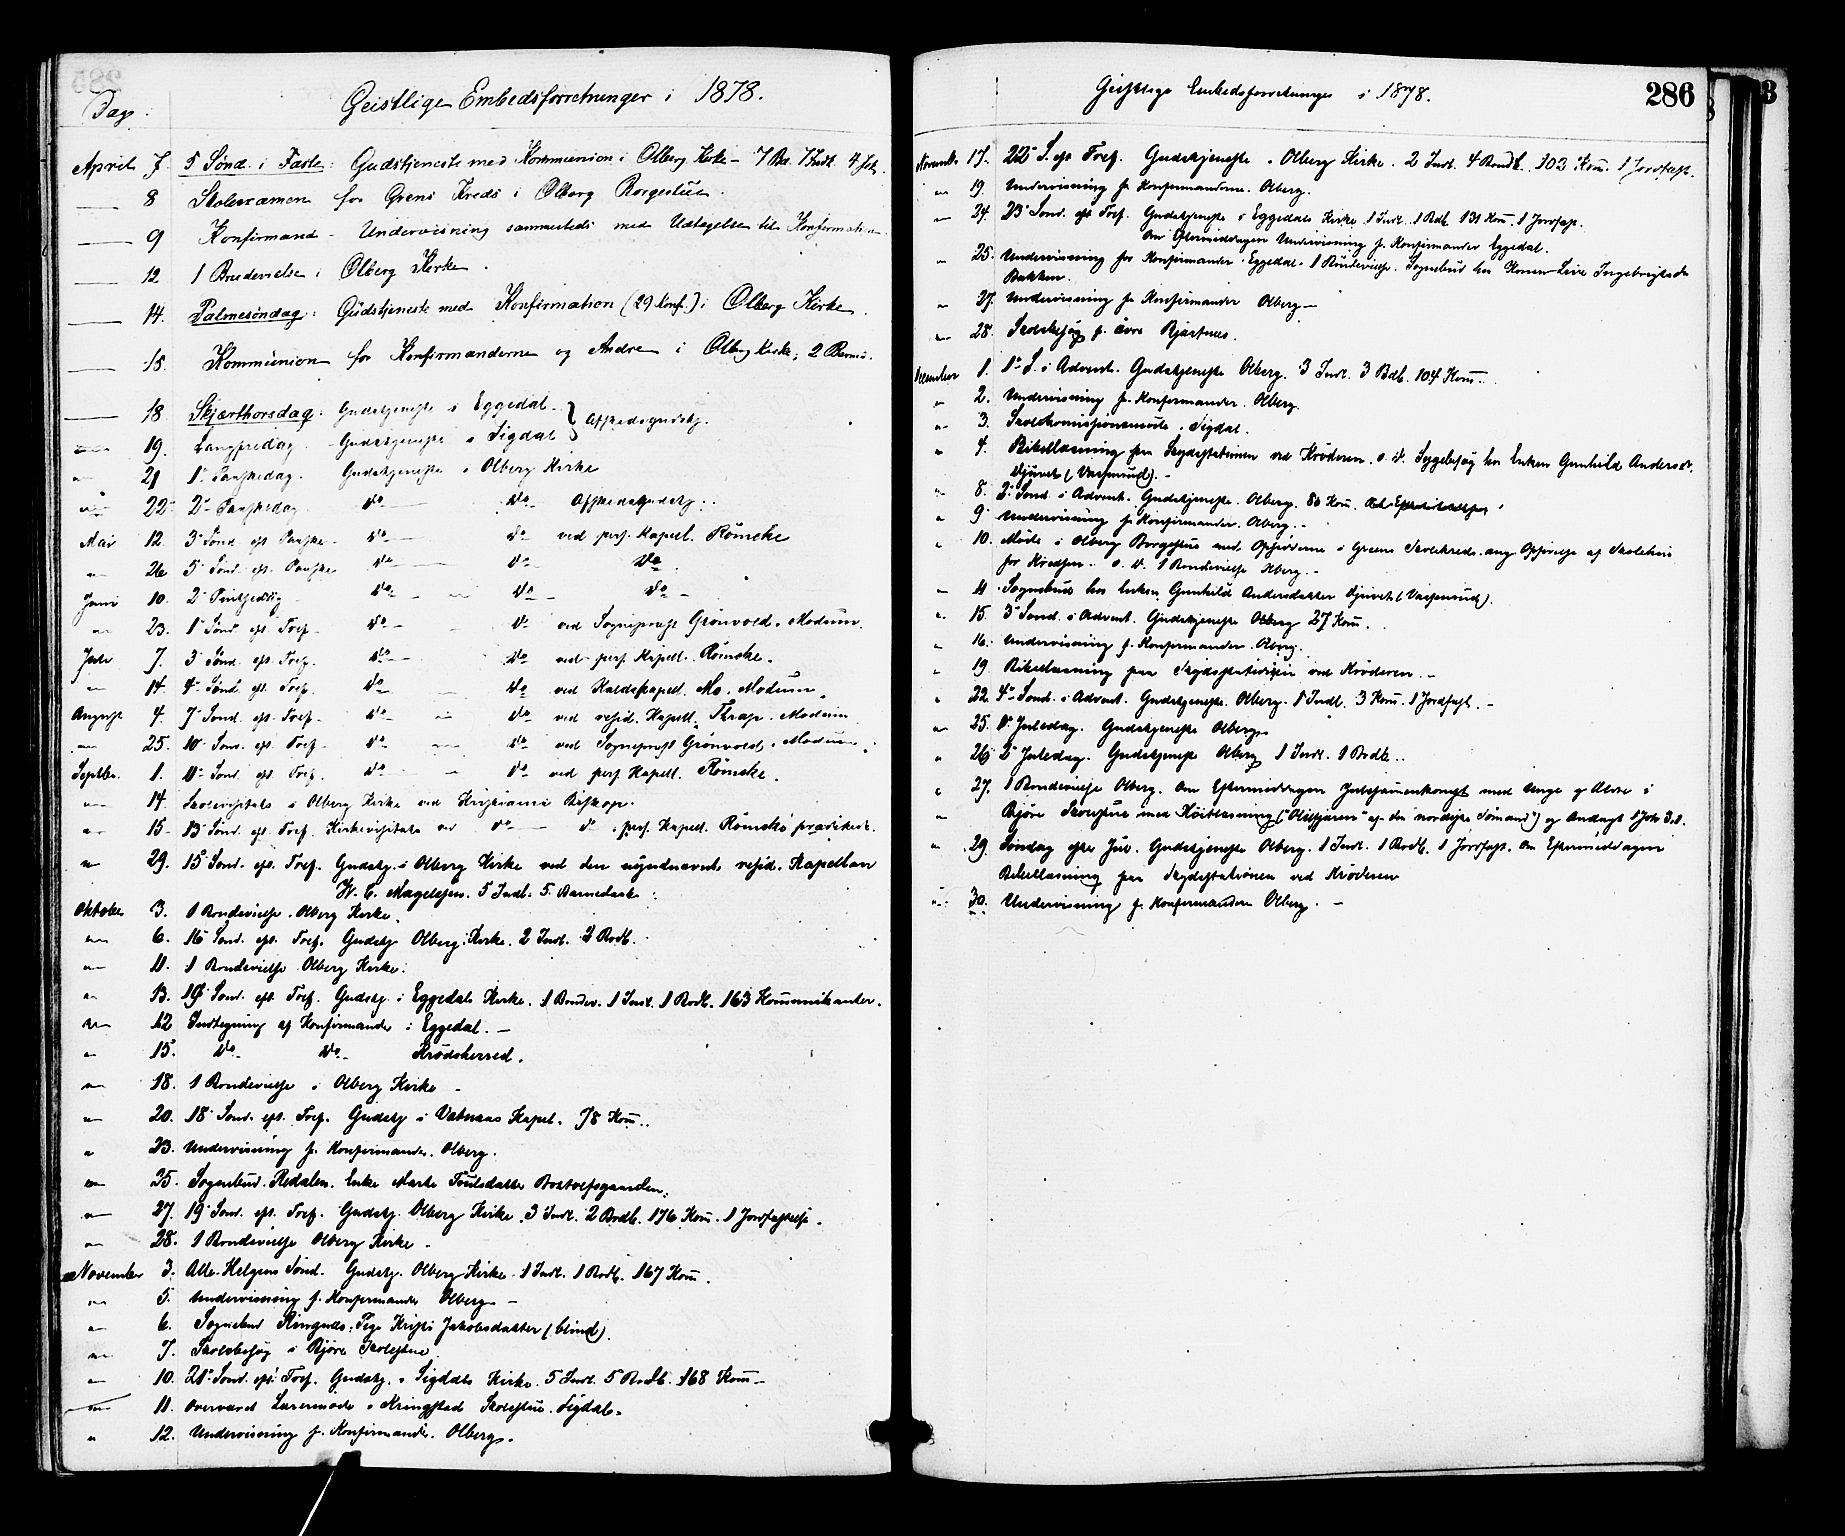 Geistlige Embedsforretninger i 1878.
Dag.
April 7. 5 Sønd. i Faste: Gudstjeneste med Kommunion i Olberg Kirke - 7 Bd. 7 Indl. 4 Jf.
— 8 Skoleexamen for Grens Kreds i Olberg Borgestue.
— 9 Konfirmand - Undervisning sammesteds med Udtagelse til Konfirmation
— 12 1 Brudevielse i Olberg Kirke.
— 14. Palmesøndag: Gudstjeneste med Konfirmation (29 Konf.) i Olberg Kirke.
— 15. Kommunion for Konfirmanderne og Andre i Olberg Kirke; 2 Barned.
— 18. Skjærthorsdag: Gudstjeneste i Eggedal. } Afskedsgudstj.
— 19. Langfredag. Gudstjeneste i Sigdal
— 21 1ste Paaskedag. Gudstjeneste i Olberg Kirke
— 22. 2den Paaskedag. do — do Afskedsgudstj.
Mai 12. 3 Sønd. eft. Paaske. do — do ved pers. Kapell. Römcke
— 26 5 Sønd. eft. Paaske do — do do
Juni 10. 2 Pintsedag do — do — do -
— 23. 1 Sønd. eft. Tref. do — do ved Sogneprest Grönvold. Modum.
Juli 7. 3 Sønd. eft. Tref. do — do ved pers. Kapell. Römcke.
— 14. 4 Sønd. eft. Tref. do — do ved Kaldskapell. Mo. Modum.
August 4. 7 Sønd. eft. Tref. do — do ved resid. Kapell. Thrap. Modum
— 25. 10 Sønd. eft. Tref. do — do ved Sogneprest Grönvold. Modum.
Septbr. 1. 11 Sønd. eft. Tref. do — do ved pers. Kapell. Römcke.
— 14. Skolevisitats i Olberg Kirke ved Kristiania Biskop.
— 15. 13 Sønd. eft. Tref. Kirkevisitats ved do — do. pers. Kapell. Römcke prædikede.
— 29. 15 Sønd. eft. Tref. Gudstj. i Olberg Kirke ved den nyudnævnte resid. Kapellan
W. C. Magelssen. 5 Indl. 5 Barnedaab.
Oktober 3. 1 Brudevielse. Olberg Kirke.
— 6. 16 Sønd. eft. Tref. Gudstj. Olberg Kirke. 2 Indl. 2 Brdb.
— 11. 1 Brudevielse Olberg Kirke.
— 13. 17 Sønd. eft. Tref. Gudstj. i Eggedals Kirke. 1 Brudev. 1 Indl. 1 Brdb. 163 Kommunikanter.
— 12 Indtegning af Konfirmander i Eggedal. —
— 15. do do Krødsherred.
— 18. 1 Brudevielse i Olberg Kirke —
— 20. 18 Sønd. eft. Tref. Gudstj i Vatnaas Kapel. 78 Kom.
— 23. Undervisning f. Konfirmander. Olberg.
— 25. Sognebud. Redalen. Enke Marte Poulsdatter
— 27. 19 Sønd. eft. Tref. Gudstj. Olberg Kirke. 3 Indl. 2 Brdb. 176 Kom. 1 Jordfæstelse.
— 28. 1 Brudevielse Olberg Kirke —
November 3. Alle-Helgens Sønd. Gudstj. Olberg Kirke. 1 Indl. 1 Brdb. 167 Kom.
— 5. Undervisning f. Konfirmander Olberg —
— 6. Sognebud Ringnæs. Pige Kristi Jakobsdatter (blind).
— 7. Skolebesøg i Bjøre Skolestue
— 10. 21 Sønd. eft. Tref. Gudstj. i Sigdals Kirke. 5 Indl. 5 Brdb. 168 Kom —
— 11. Overværet Lærermøde i Kringstad Skolestue. Sigdal.
— 12. Undervisning f. Konfirmander. Olberg.
Geistlige Embedsforretninger i 1878.
286
Novemb. 17. 22 S. eft Tref. Gudstjeneste. Olberg Kirke. 2 Indl. 4 Brdb. 103 Kom. 1 Jordfæst.
— 19. Undervisning f. Konfirmanderne. Olberg.
— 24. 23 Sønd. eft Tref. Gudstjeneste i Eggedals Kirke 1 Indl. 1 Bdb. 131 Kom. 1 Jordfæst.
Om Eftermiddagen Undervisning f. Konfirmander Eggedal.
— 25. Undervisning for Konfirmander. Eggedal. 1 Brudevielse. Sognebud hos Konen Live Ingebrigtsdr
Bakken.
— 27. Undervisning f. Konfirmander Olberg —
— 28. Skolebesøg p. øvre Bjertnes.
December 1. 1 S. i Advent. Gudstjeneste Olberg. 3 Indl. 3 Bdb. 104 Kom.
— 2. Undervisning f. Konfirmander. Olberg.
— 3. Skolekommissionsmøde. Sigdal.
— 4. Bibellæsning paa Skydsstationen ved Krøderen. o. V. Sygebesøg hos Enken Gunhild Andersdr.
Djuvet
— 8. 2 Sønd. i Advent. Gudstjeneste. Olberg. 80 Kom.
— 9 Undervisning f. Konfirmander. Olberg. —
— 10. Møde i Olberg Borgestue med Opsidderne i Greens Skolekreds. ang Opførelse af Skolehus
for Kredsen. o. V. 1 Brudevielse Olberg. —
— 11 Sognebud hos Enken Gunhild Andersdatter Djuvet
— 15. 3 Sønd. i Advent. Gudstjeneste Olberg 27 Kom.
— 16. Undervisning f. Konfirmander. Olberg.
— 19 Bibellæsning paa Skydsstationen ved Krøderen. —
— 22. 4 Sønd. i Advent. Gudstjeneste. Olberg. 1 Indl. 3 Kom. 1 Jordfæst. —
— 25. 1 Juledag. Gudstjeneste Olberg.
— 26 2 Juledag. Gudstjeneste Olberg 1 Indl. 1 Brdb.
— 27. 1 Brudevielse Olberg. Om Eftermiddagen Julesammenkomst med Unge og Ældre i
Bjøre Skolestue med Høitlæsning og Andagt
— 29. Søndag efter Jul. Gudstjeneste Olberg. 1 Indl. 1 Brdb. 1 Jordfæst. Om Eftermiddagen
Bibellæsning paa Skydsstationen ved Krøderen
— 30. Undervisning f. Konfirmander Olberg. —